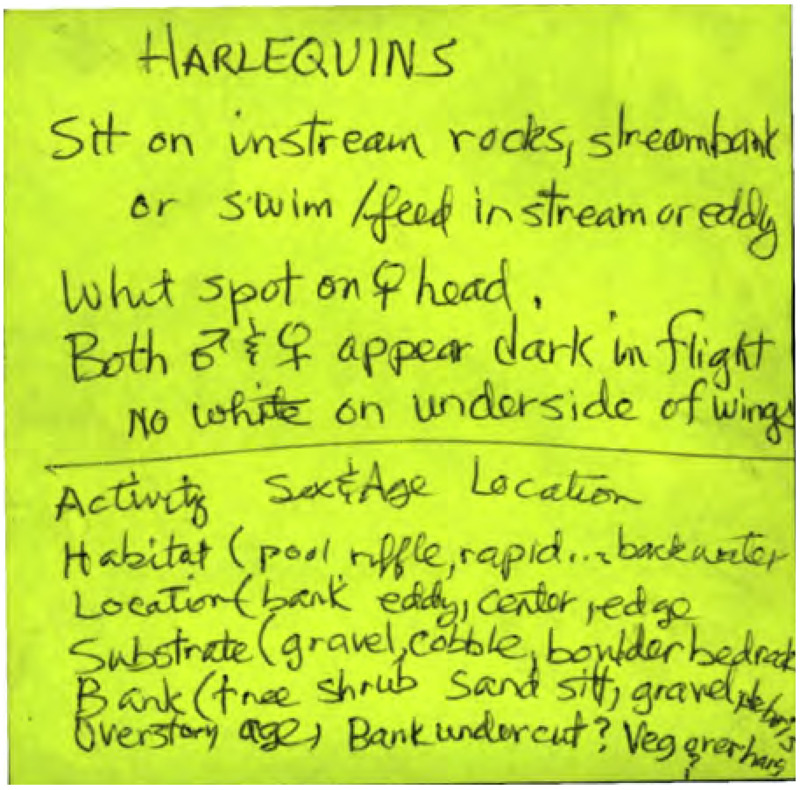 HARLEQUINS
Sit on instream rocks, streambank
or swim/feed in stream or eddy
Whit spot on ♀ head.
Both ♂ & ♀ appear dark in flight
No white on underside of wings
Activity Sex & Age Location
Habitat (pool riffle, rapid... backwater
Location (bank eddy, center, edge
Substrate (gravel, cobble, boulder bedrock
Bank (tree shrub Sand silt, gravel, debris
Overstory age, Bank undercut? Veg overhang
?